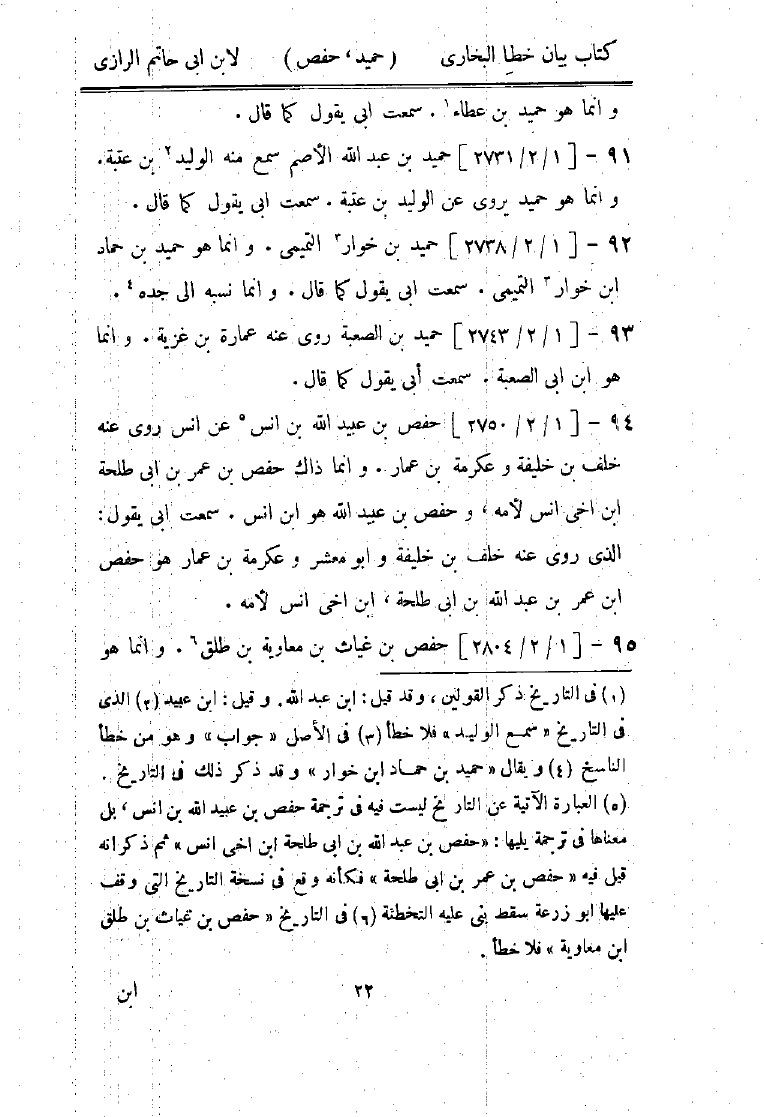 كتاب بيان خطإ البخارى ( حميد ، حفص ) لابن ابى حاتم الرازى
و انما هو حميد بن عطاء١ . سمعت ابى يقول كما قال .
٩١ - [ ٢٧٣١/٢/١ ] حميد بن عبد الله الأصم سمع منه الوليد٢ بن عتبة .
و انما هو حميد يروى عن الوليد بن عتبة . سمعت ابى يقول كما قال .
٩٢ - [ ٢٧٣٨/٢/١ ] حميد بن خوار٣ التميمى . و انما هو حميد بن حماد
ابن خوار٣ التميمى . سمعت ابى يقول كما قال . و انما نسبه الى جده٤ .
٩٣ - [ ٢٧٤٣/٢/١ ] حميد بن الصعبة روى عنه عمارة بن غزية . و انما
هو ابن ابى الصعبة . سمعت أبى يقول كما قال .
٩٤ - [ ٢٧٥٠/٢/١ ] حفص بن عبيد الله بن انس٥ عن انس روى عنه
خلف بن خليفة و عكرمة بن عمار . و انما ذاك حفص بن عمر بن ابى طلحة
ابن اخى انس لأمه ، و حفص بن عبيد الله هو ابن انس . سمعت ابى يقول :
الذى روى عنه خلف بن خليفة و ابو معشر و عكرمة بن عمار هو حفص
ابن عمر بن عبد الله بن ابى طلحة ، ابن اخى انس لأمه .
٩٥ - [ ٢٨٠٤/٢/١ ] حفص بن غياث بن معاوية بن طلق٦ . و انما هو
(١) فى التاريخ ذكر القولين ، وقد قيل : ابن عبد الله . و قيل : ابن عبيد (٢) الذى
فى التاريخ « سمع الوليد » فلا خطأ (٣) فى الأصل « جواب » و هو من خطأ
الناسخ (٤) و يقال « حميد بن حماد ابن خوار » و قد ذكر ذلك فى التاريخ .
(٥) العبارة الآتية عن التاريخ ليست فيه فى ترجمة حفص بن عبيد الله بن انس ، بل
معناها فى ترجمة يليها : « حفص بن عبد الله بن ابى طلحة ابن اخى انس » ثم ذكر انه
قيل فيه « حفص بن عمر بن ابى طلحة » فكأنه وقع فى نسخة التاريخ التى وقف
عليها ابو زرعة سقط بنى عليه التخطئة (٦) فى التاريخ « حفص بن غياث بن طلق
ابن معاوية » فلا خطأ .
٢٢ ابن